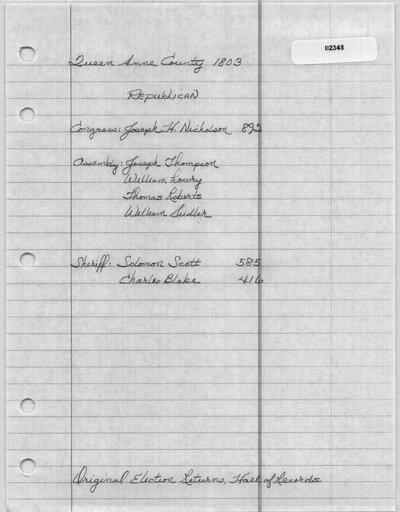 02343
Queen Anne County 1803
REPUBLICAN
Congress: Joseph H. Nicholson 892
Assembly: Joseph Thompson
William Lowry
Thomas Roberts
William Sudler
Sheriff: Solomon Scott 585
Charles Blake 416
Original Election Returns, Hall of Records